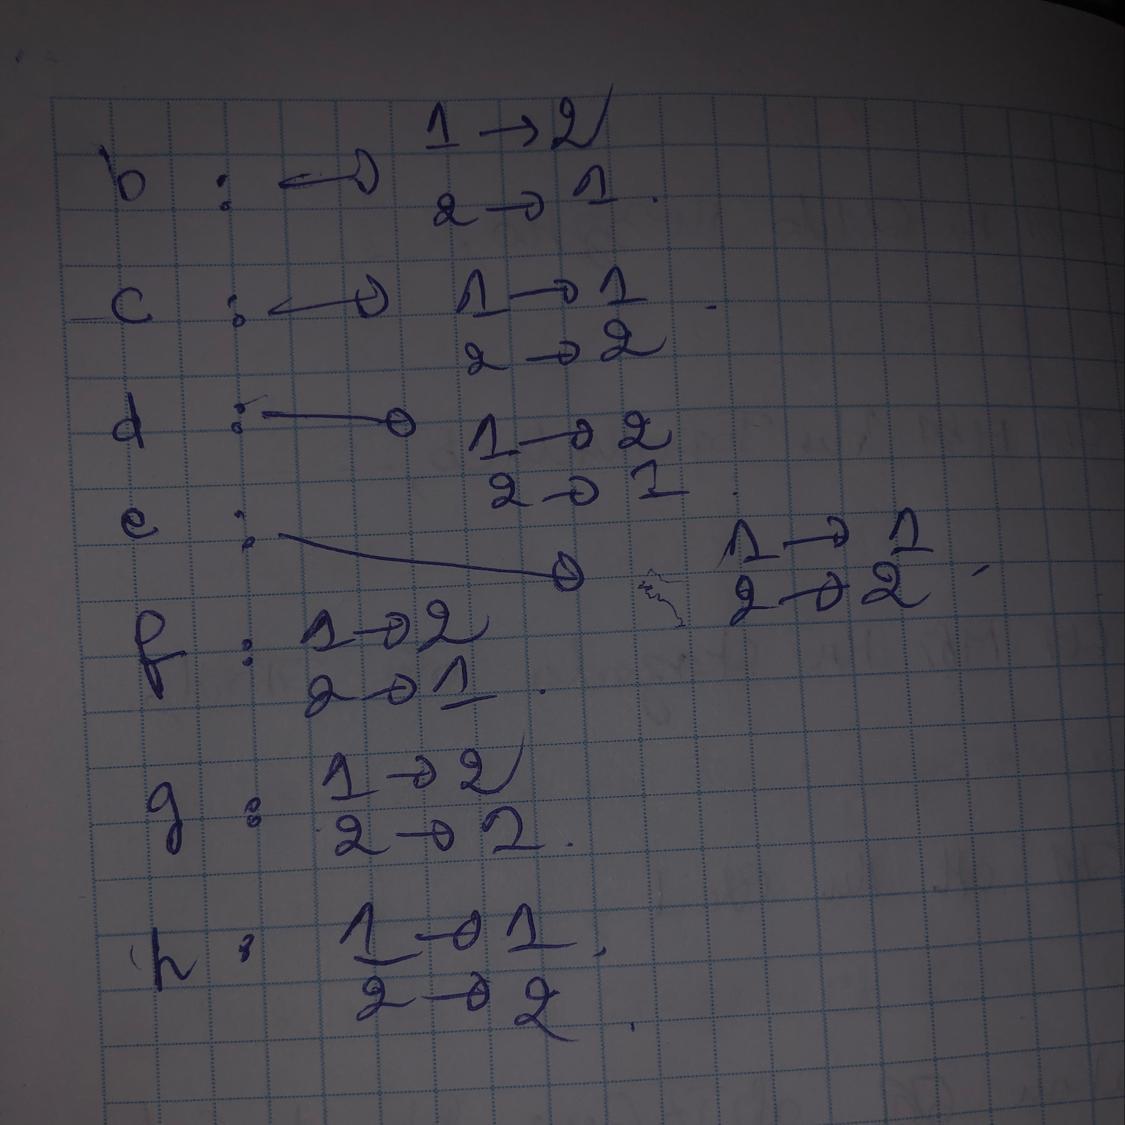 1 → 2
b : → 2 → 1.
c : → 1 → 1.
2 → 2
d : → 1 → 2
2 → 1.
e : → 1 → 1
2 → 2.
f : 1 → 2
2 → 1.
g : 1 → 2
2 → 1.
h : 1 → 1.
2 → 2.